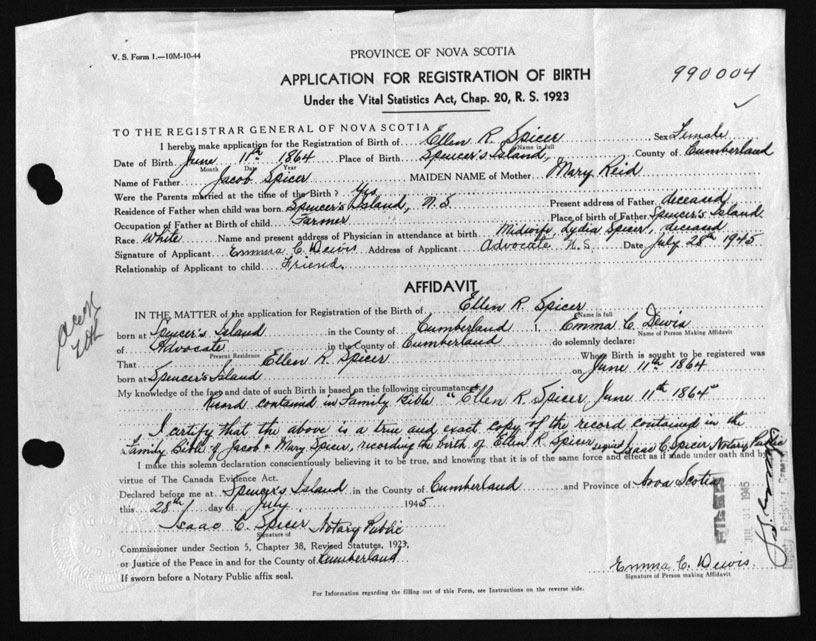 V. S. Form 1.—10M-10-44
PROVINCE OF NOVA SCOTIA
990004
APPLICATION FOR REGISTRATION OF BIRTH
Under the Vital Statistics Act, Chap. 20, R. S. 1923
TO THE REGISTRAR GENERAL OF NOVA SCOTIA
I hereby make application for the Registration of Birth of Ellen R. Spicer Sex Female
Name in full
Date of Birth June 11th 1864 Place of Birth Spencer's Island, County of Cumberland
Month Date Year
Name of Father Jacob Spicer MAIDEN NAME of Mother Mary Reid
Were the Parents married at the time of the Birth? Yes
Residence of Father when child was born Spencer's Island, N.S Present address of Father deceased
Occupation of Father at Birth of child Farmer Place of birth of Father Spencer's Island
Race White Name and present address of Physician in attendance at birth Midwife, Lydia Spicer, deceased
Signature of Applicant Emma C. Dewis Address of Applicant Advocate N.S. Date July 28th 1945
Relationship of Applicant to child Friend
AFFIDAVIT
IN THE MATTER of the application for Registration of the Birth of Ellen R. Spicer
Name in full
born at Spencer's Island in the County of Cumberland I, Emma C. Dewis
Name of Person Making Affidavit
of Advocate in the County of Cumberland do solemnly declare:
Present Residence
That Ellen R. Spicer Whose Birth is sought to be registered was
born at Spencer's Island on June 11th 1864
My knowledge of the fact and date of such Birth is based on the following circumstances
Record contained in Family Bible "Ellen R Spicer June 11th 1864"
I certify that the above is a true and exact copy of the record contained in the
Family Bible of Jacob & Mary Spicer, recording the birth of Ellen R. Spicer signed Isaac C. Spicer Notary Public
I make this solemn declaration conscientiously believing it to be true, and knowing that it is of the same force and effect as if made under oath and by
virtue of The Canada Evidence Act.
Declared before me at Spencer's Island in the County of Cumberland and Province of Nova Scotia
this 28th day of July 1945
Isaac C. Spicer Notary Public
Signature of
Commissioner under Section 5, Chapter 38, Revised Statutes, 1923,
or Justice of the Peace in and for the County of Cumberland
If sworn before a Notary Public affix seal.
Emma C. Dewis
Signature of Person making Affidavit
For Information regarding the filling out of this Form, see Instructions on the reverse side.
FILED
JUL 31 1945